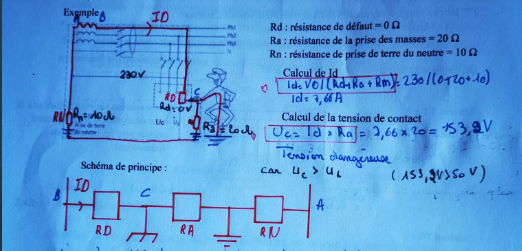 Exemple
A B ID
Ph1
Ph2
Ph3
N
230V
RD C
Rd=0V
RN Rn=10Ω
Prise de terre
du neutre
Uc
Ra=20Ω
Rd : résistance de défaut = 0 Ω
Ra : résistance de la prise des masses = 20 Ω
Rn : résistance de prise de terre du neutre = 10 Ω
Calcul de Id
Id = V0/(Rd+Ra+Rn) = 230/(0+20+10)
Id = 7,66A
Calcul de la tension de contact
Uc = Id x Ra = 7,66 x 20 = 153,2V
Tension dangereuse
car Uc > UL (153,2V>50V)
Schéma de principe :
B ID C A
RD RA RN